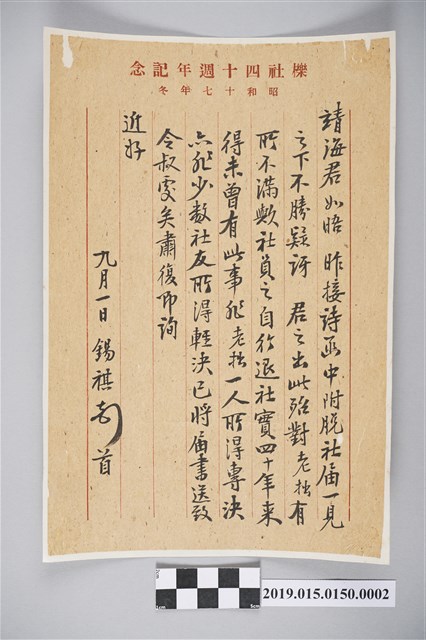 櫟社四十週年記念
昭和十七年冬
靖海君如晤 昨接詩函中附脫社届一見
之下不勝疑訝 君之出此殆對老拙有
所不滿歟社員之自行退社實四十年來
得未曾有此事非老拙一人所得專決
亦非少數社友所得輕決已將届書送致
令叔雯矣肅復即詢
近好
九月一日 錫祺 首
2019.015.0150.0002